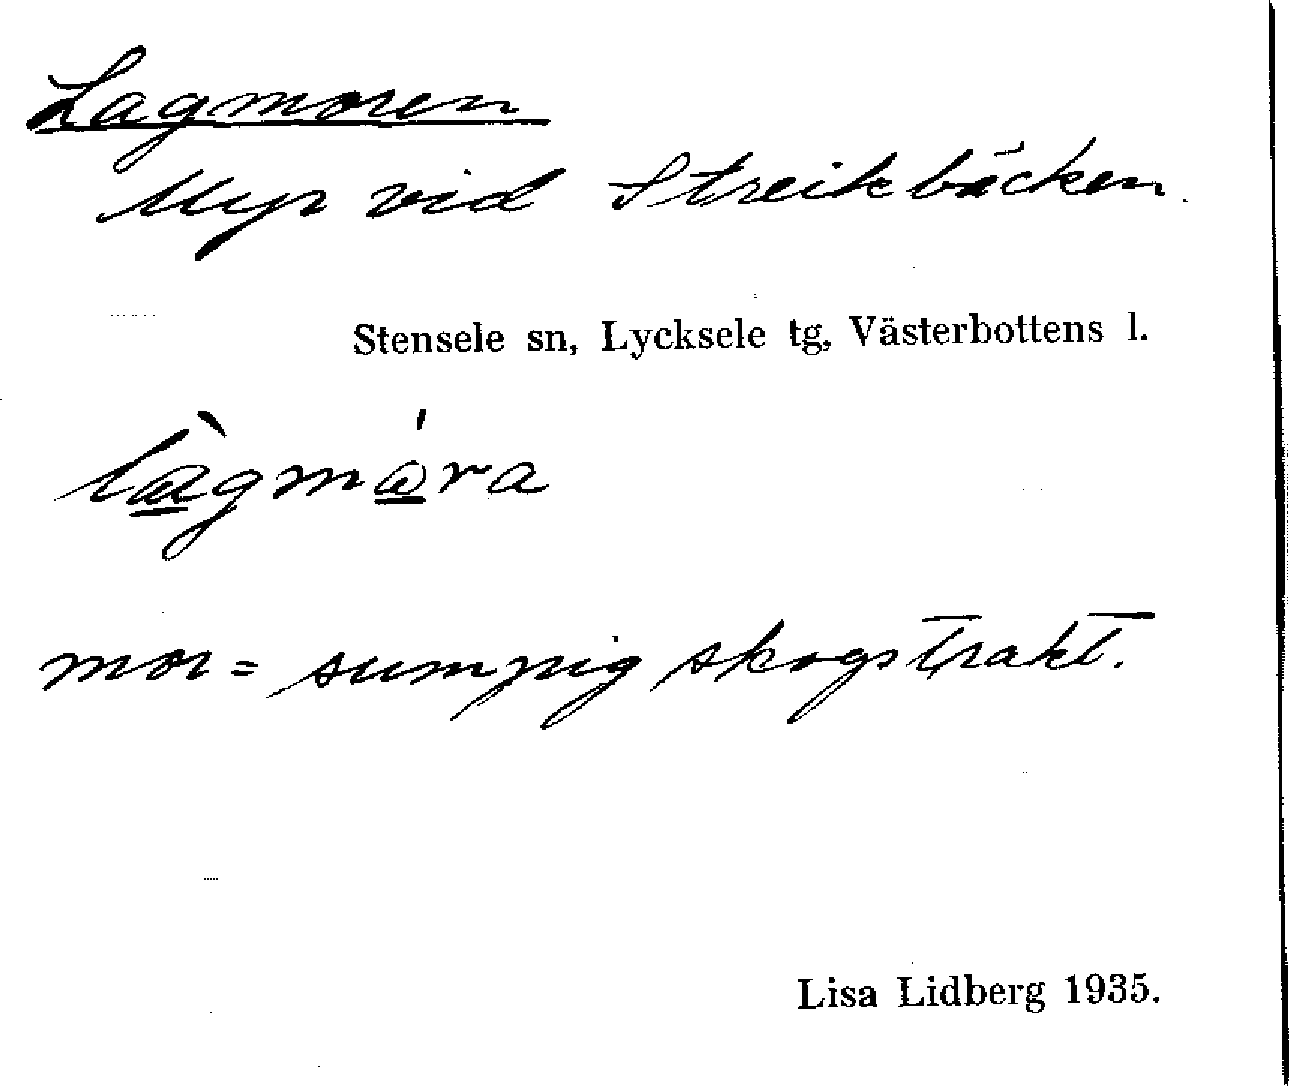 Lagmoren
Myr vid Streikbäcken.
Stensele sn, Lycksele tg, Västerbottens l.
là̲gmɷ̲́ra
mor = sumpig skogstrakt.
Lisa Lidberg 1935.